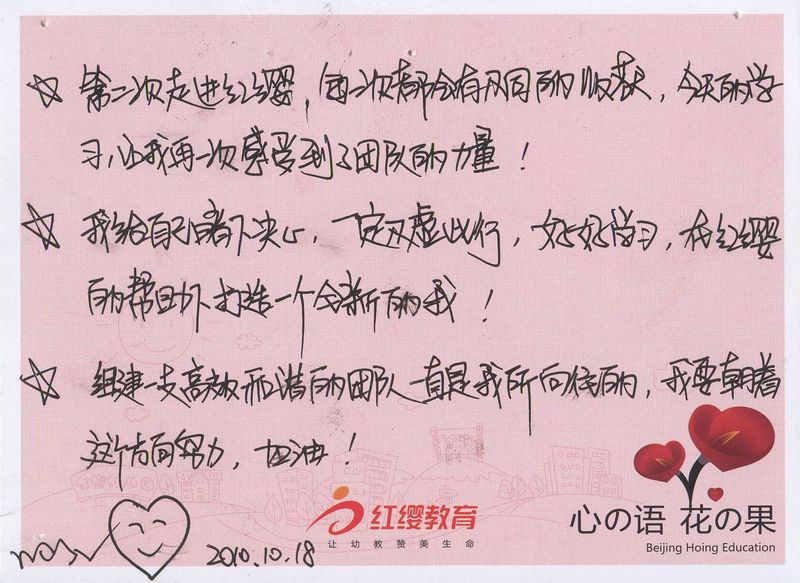 ☆ 第二次走进红婴，每次都会有不同的收获，今天的学
习，让我再一次感受到了团队的力量！
☆ 我给自己暗下决心，一定不虚此行，好好学习，在红婴
的帮助下打造一个全新的我！
☆ 组建一支高效和谐的团队一直是我所向往的，我要朝着
这个方向努力，加油！
2010.10.18
红缨教育
让幼教赞美生命
心の语 花の果
Beijing Hoing Education